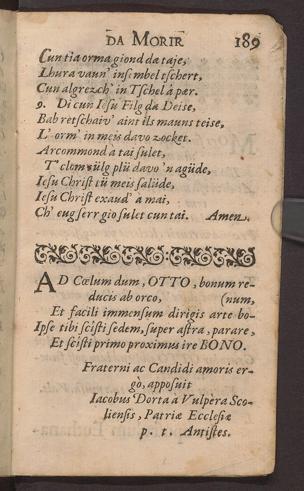 DA MORIR 189
Cun tia orma giond da taje,
Lhura vaun' insembel tschert,
Cun algrezch' in Tschel à pær.
9. Di cun Iesu Filg da Deise,
Bab retschaiv' aint ils mauns teise,
L' orm' in meis davo zocket.
Arcommond à tai sulet,
T' clom eülg plü davo 'n agüde,
Iesu Christ tü meis salüde,
Iesu Christ exaud' à mai,
Ch' eug serr gio sulet cun tai. Amen.
AD Cœlum dum, OTTO, bonum re-
ducis ab orco, (num,
Et facili immensum dirigis arte bo-
Ipse tibi scisti sedem, super astra, parare,
Et scisti primo proximus ire BONO.
Fraterni ac Candidi amoris er-
gò, apposuit
Iacobus Dorta à Vulpèra Sco-
liensis, Patriæ Ecclesiæ
p. t. Antistes.